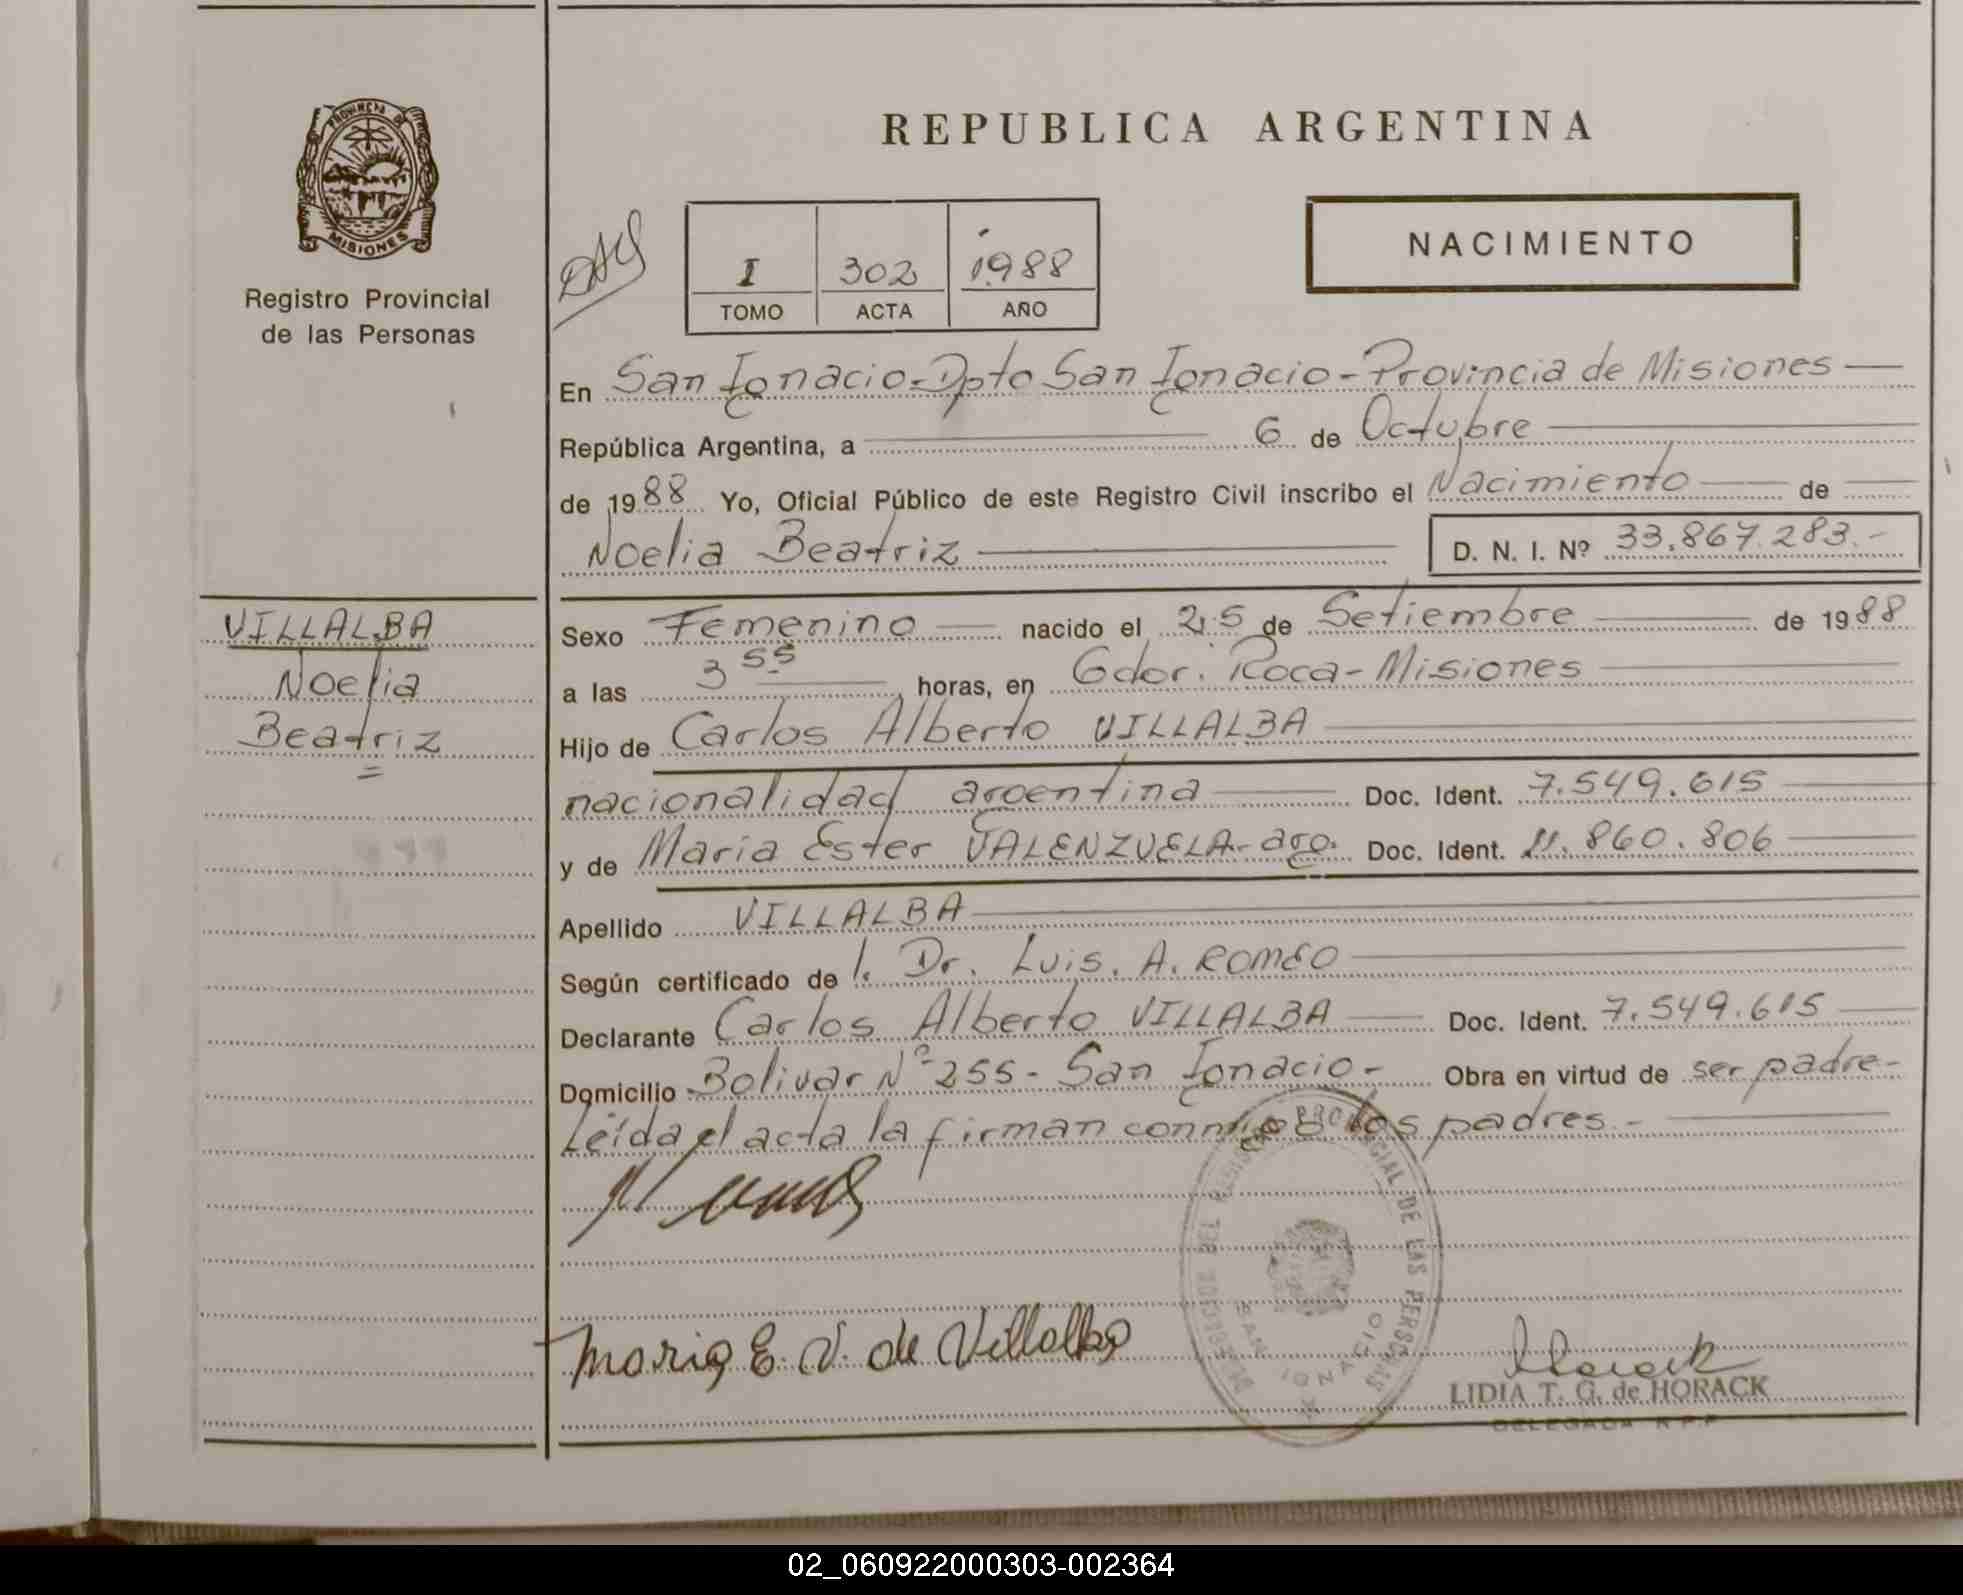 PROVINCIA DE
MISIONES
Registro Provincial
de las Personas
VILLALBA
Noelia
Beatriz
REPUBLICA ARGENTINA
I 302 1988
TOMO ACTA AÑO
NACIMIENTO
En San Ignacio-Dpto San Ignacio-Provincia de Misiones
República Argentina, a 6 de Octubre
de 1988 Yo, Oficial Público de este Registro Civil inscribo el Nacimiento de
Noelia Beatriz D. N. I. Nº 33.867.283.-
Sexo Femenino nacido el 25 de Setiembre de 1988
a las 3 55 horas, en Gdor. Roca-Misiones
Hijo de Carlos Alberto VILLALBA
nacionalidad argentina Doc. Ident. 7.549.615
y de Maria Ester VALENZUELA-arg. Doc. Ident. 11.860.806
Apellido VILLALBA
Según certificado de l. Dr. Luis. A. ROMEO
Declarante Carlos Alberto VILLALBA Doc. Ident. 7.549.615
Domicilio Bolivar Nº 255- San Ignacio- Obra en virtud de ser padre-
Leída el acta la firman conmigo los padres.-
DEL REGISTRO PROVINCIAL DE LAS PERSONAS
SAN IGNACIO
Maria E. V. de Villalba
Horack
LIDIA T. G. de HORACK
DELEGADA R.P.P
02_060922000303-002364